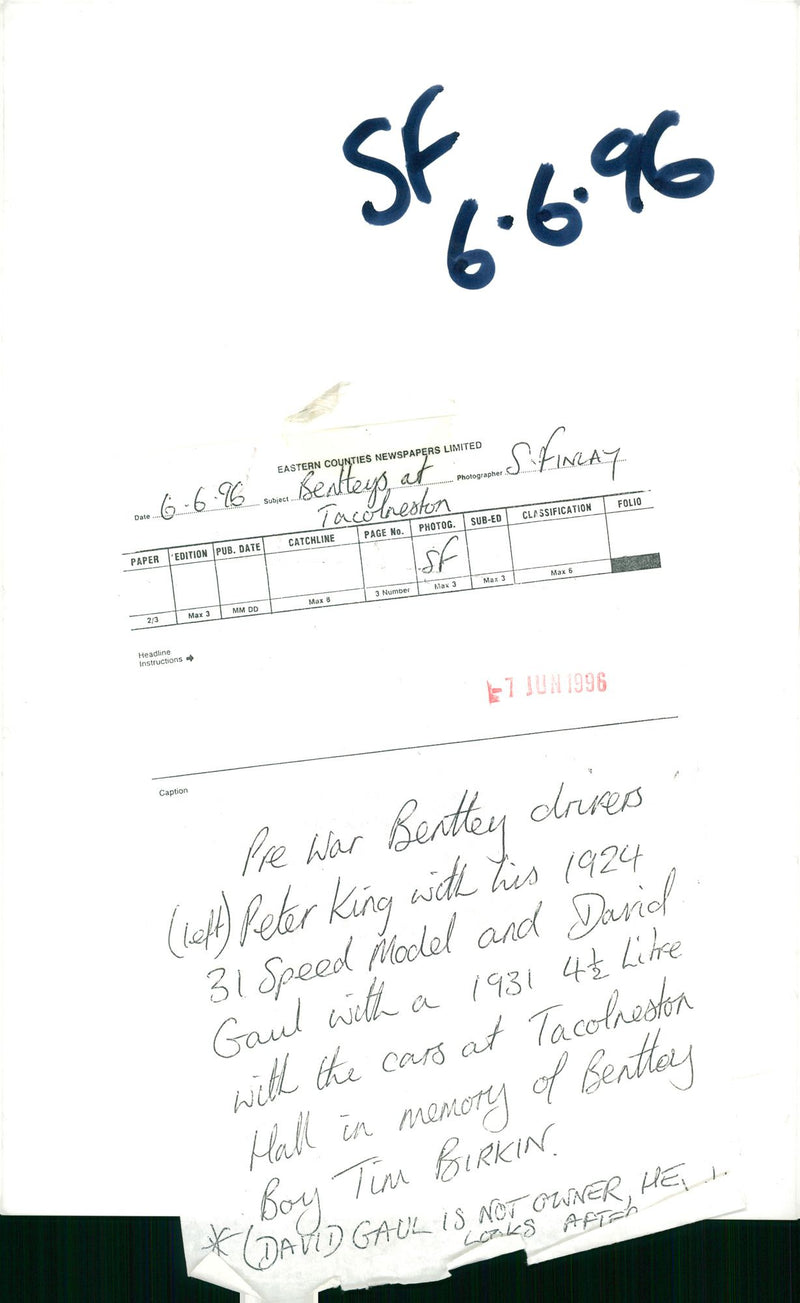 SF
6.6.96
EASTERN COUNTIES NEWSPAPERS LIMITED
Date 6-6-96 Subject Bentleys at Tacolneston Photographer S. FINLAY
PAPER EDITION PUB. DATE CATCHLINE PAGE No. PHOTOG. SUB-ED CLASSIFICATION FOLIO
SF
2/3 Max 3 MM DD Max 8 3 Number Max 3 Max 3 Max 6
Headline
Instructions
7 JUN 1996
Caption
Pre War Bentley drivers
(left) Peter King with his 1924
31 Speed Model and David
Gaul with a 1931 4½ Litre
with the cars at Tacolneston
Hall in memory of Bentley
Boy Tim BIRKIN.
* (DAVID GAUL IS NOT OWNER, HE
LOOKS AFTER